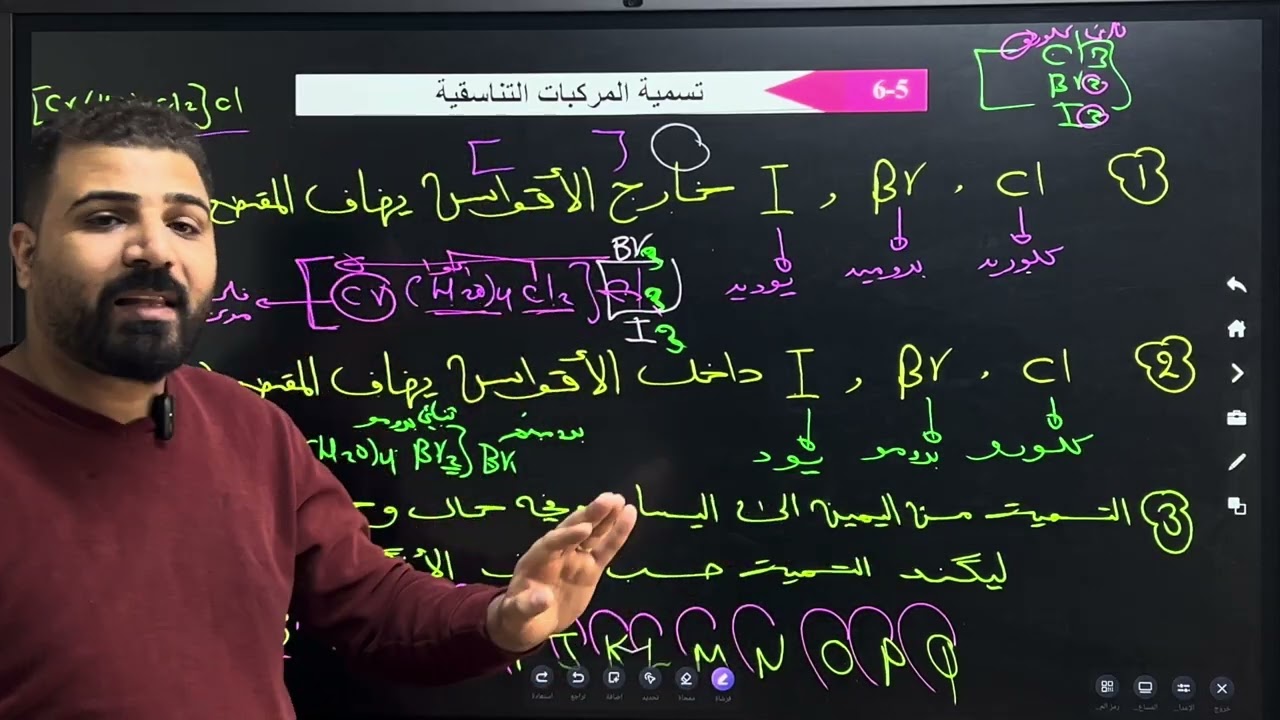 6-5 تسمية المركبات التناسقية
[Cr( Cl2]Cl
ثنائي كلورو
Cl3
Br2
I2
[ ]
① Cl , Br , I خارج الأقواس يضاف المقطع
كلوريد بروميد يوديد
Br3
[Cr(H2O)4 Cl2] Cl3
I3
② Cl , Br , I داخل الأقواس يضاف المقطع
كلورو برومو يودو
ثنائي برومو
(H2O)4 Br2] Br
③ التسمية من اليمين الى اليسار وفي حال
ليكند التسمية حسب
J K L M N O P Q
استعادة
تراجع
اضافة
تحديد
ممحاة
فرشاة
رمز الم...
المساع...
الإعدا...
خروج